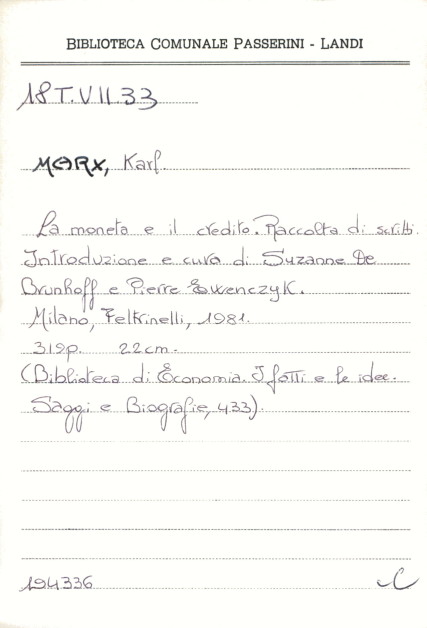 BIBLIOTECA COMUNALE PASSERINI - LANDI
18 T.VII.33
MARX, Karl.
La moneta e il credito. Raccolta di scritti.
Introduzione e cura di Suzanne De
Brunhoff e Pierre Ewenczyk.
Milano, Feltrinelli, 1981.
319p. 22cm.
(Biblioteca di Economia. I fatti e le idee.
Saggi e Biografie, 433).
194336